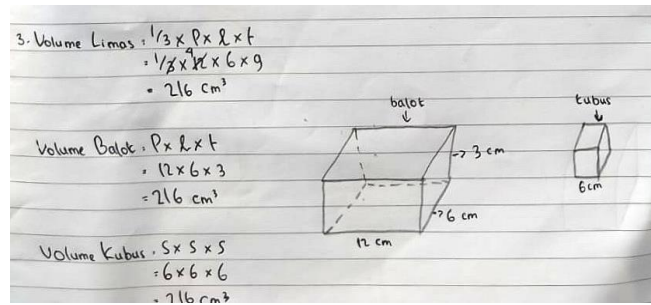 3. Volume Limas : 1/3 x P x l x t
= 1/3 x 12 4 x 6 x 9
= 216 cm³
Volume Balok : P x l x t
= 12 x 6 x 3
= 216 cm³
Volume Kubus : S x S x S
= 6 x 6 x 6
= 216 cm³
balok
3 cm
6 cm
12 cm
tubus
6 cm